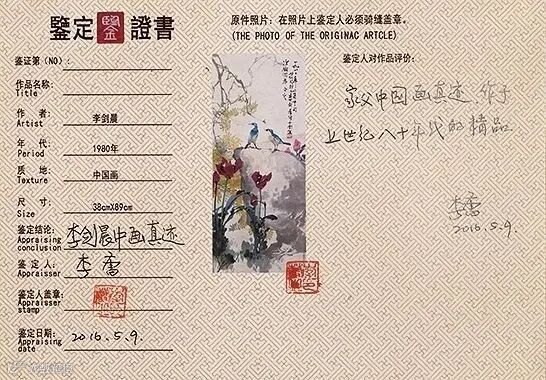 鑒定 鑒 證書
鉴证第(NO):
作品名称:
Title
作 者: 李剑晨
Artist
年 代: 1980年
Period
质 地: 中国画
Texture
尺 寸: 38cmX89cm
Size
鉴定结论: 李剑晨中画真迹
Appraising
conclusion
鉴 定 人: 李蕾
Appraisser
鉴定人盖章:
Appraisser
stamp
鉴定日期: 2016.5.9.
Appraising
date
原件照片: 在照片上鉴定人必须骑缝盖章。
(THE PHOTO OF THE ORIGINAC ARTCLE)
鉴定人对作品评价:
家父中国画真迹,作于
上世纪八十年代的精品
李蕾
2016.5.9.